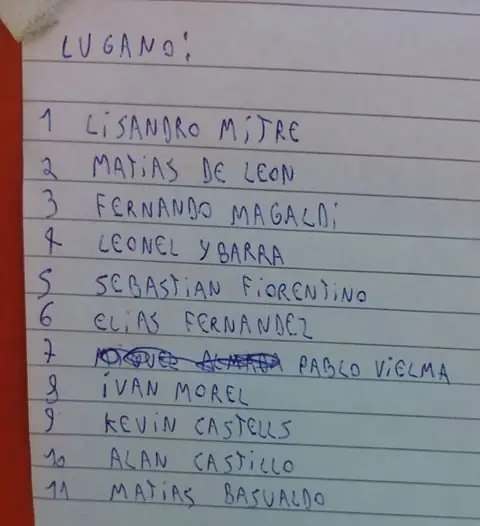 LUGANO:
1 LISANDRO MITRE
2 MATIAS DE LEON
3 FERNANDO MAGALDI
4 LEONEL YBARRA
5 SEBASTIAN FIORENTINO
6 ELIAS FERNANDEZ
7 PABLO VIELMA
8 IVAN MOREL
9 KEVIN CASTELLS
10 ALAN CASTILLO
11 MATIAS BASUALDO